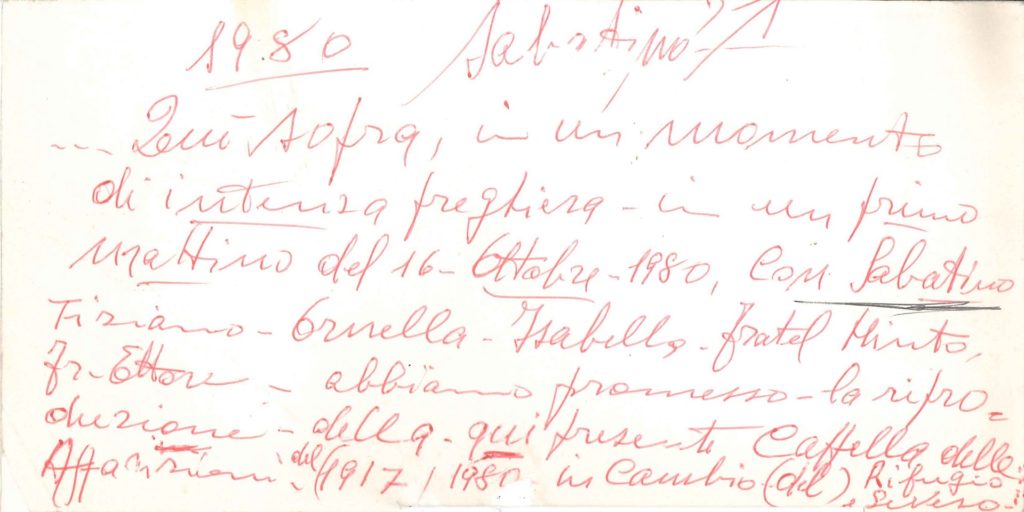 1980 Sabatino - 1
... Qui sopra, in un momento
di intensa preghiera - in un primo
mattino del 16 - Ottobre - 1980, Con Sabatino
Tiziano - Ornella - Isabella - fratel Minto,
Fr. Ettore - abbiamo promesso - la ripro=
duzione - della - qui presente Cappella delle
Apparizioni, del (1917 / 1980 in Cambio (del) Rifugio
Seveso -